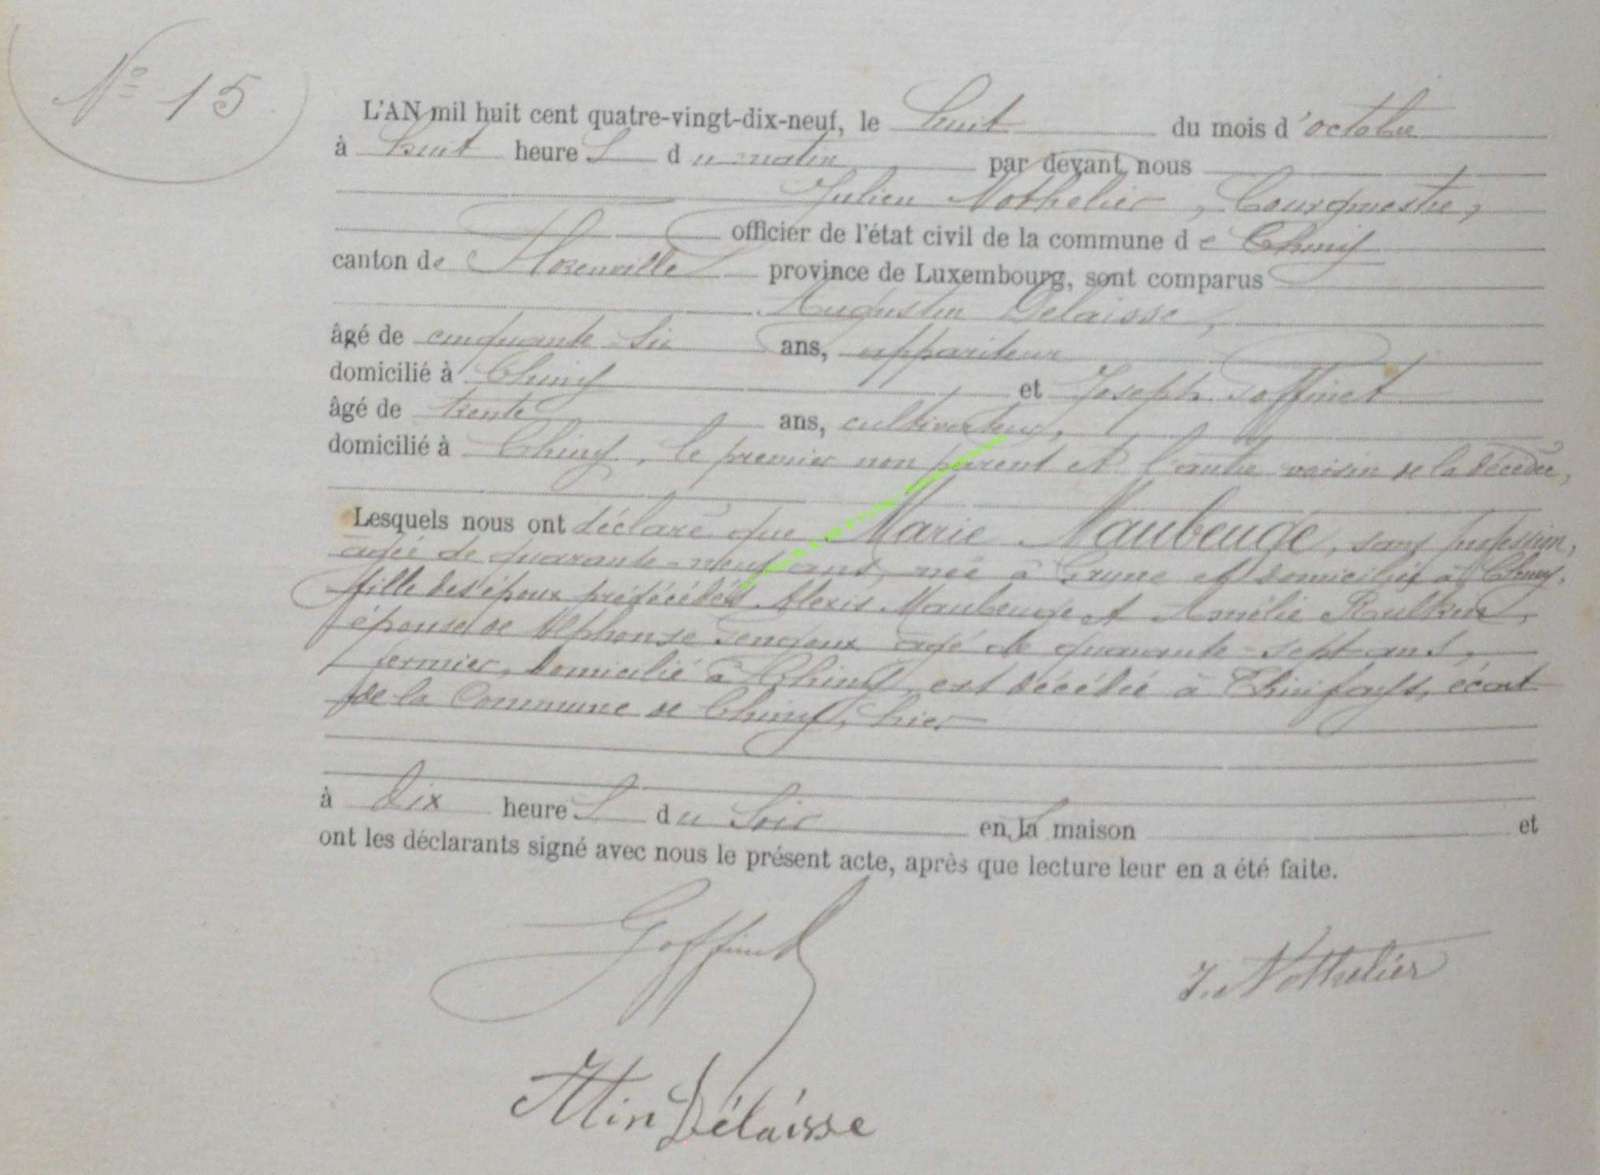 N° 15
L'AN mil huit cent quatre-vingt-dix-neuf, le huit du mois d'octobre
à huit heures du matin par devant nous
Julien Nothelier, Bourgmestre,
officier de l'état civil de la commune de Chiny
canton de Florenville province de Luxembourg, sont comparus
Augustin Delaisse,
âgé de cinquante-six ans, appariteur
domicilié à Chiny et Joseph Goffinet
âgé de trente ans, cultivateur,
domicilié à Chiny, le premier non parent et l'autre voisin de la décédée,
Lesquels nous ont déclaré que Marie Maubeuge, sans profession,
agée de quarante-neuf ans, née à Grune et domiciliée à Chiny,
fille des époux prédécédés Alexis Maubeuge et Amélie
épouse de Alphonse agé de quarante-sept ans,
fermier, domicilié à Chiny, est décédée à écart
de la Commune de Chiny, hier
à dix heures du soir en sa maison et
ont les déclarants signé avec nous le présent acte, après que lecture leur en a été faite.
Goffinet
J. Nothelier
Atin Délaisse